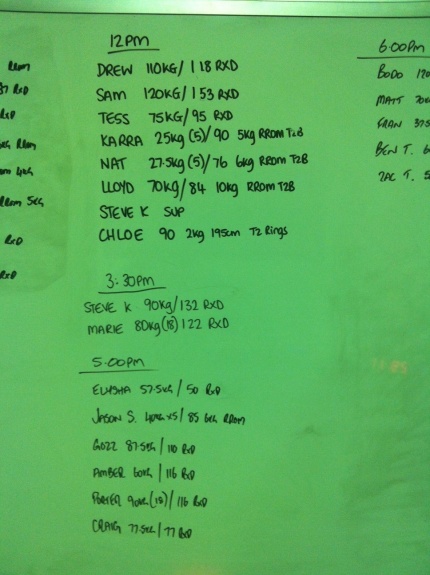 RROM
RXD
RXD
12PM
DREW 110KG/118 RXD
SAM 120KG/153 RXD
TESS 75KG/95 RXD
KARRA 25kg (5)/90 5kg RROM T2B
NAT 27.5kg(5)/76 6kg RROM T2B
LLOYD 70kg/84 10kg RROM T2B
STEVE K SUP
CHLOE 90 2kg 195cm T2 Rings
3:30PM
STEVE K 90kg/132 RXD
MARIE 80kg(18) 122 RXD
5:00PM
ELYSHA 57.5kg/50 RXD
JASON S. 40kg x5/85 6kg RROM
GOZZ 87.5kg/110 RXD
AMBER 60kg/116 RXD
PORTER 90kg(15)/116 RXD
CRAIG 77.5kg/77 RXD
6:00PM
BODO 120
MATT 70k
FRAN 37.5
BEN T.
ZAC T. 5